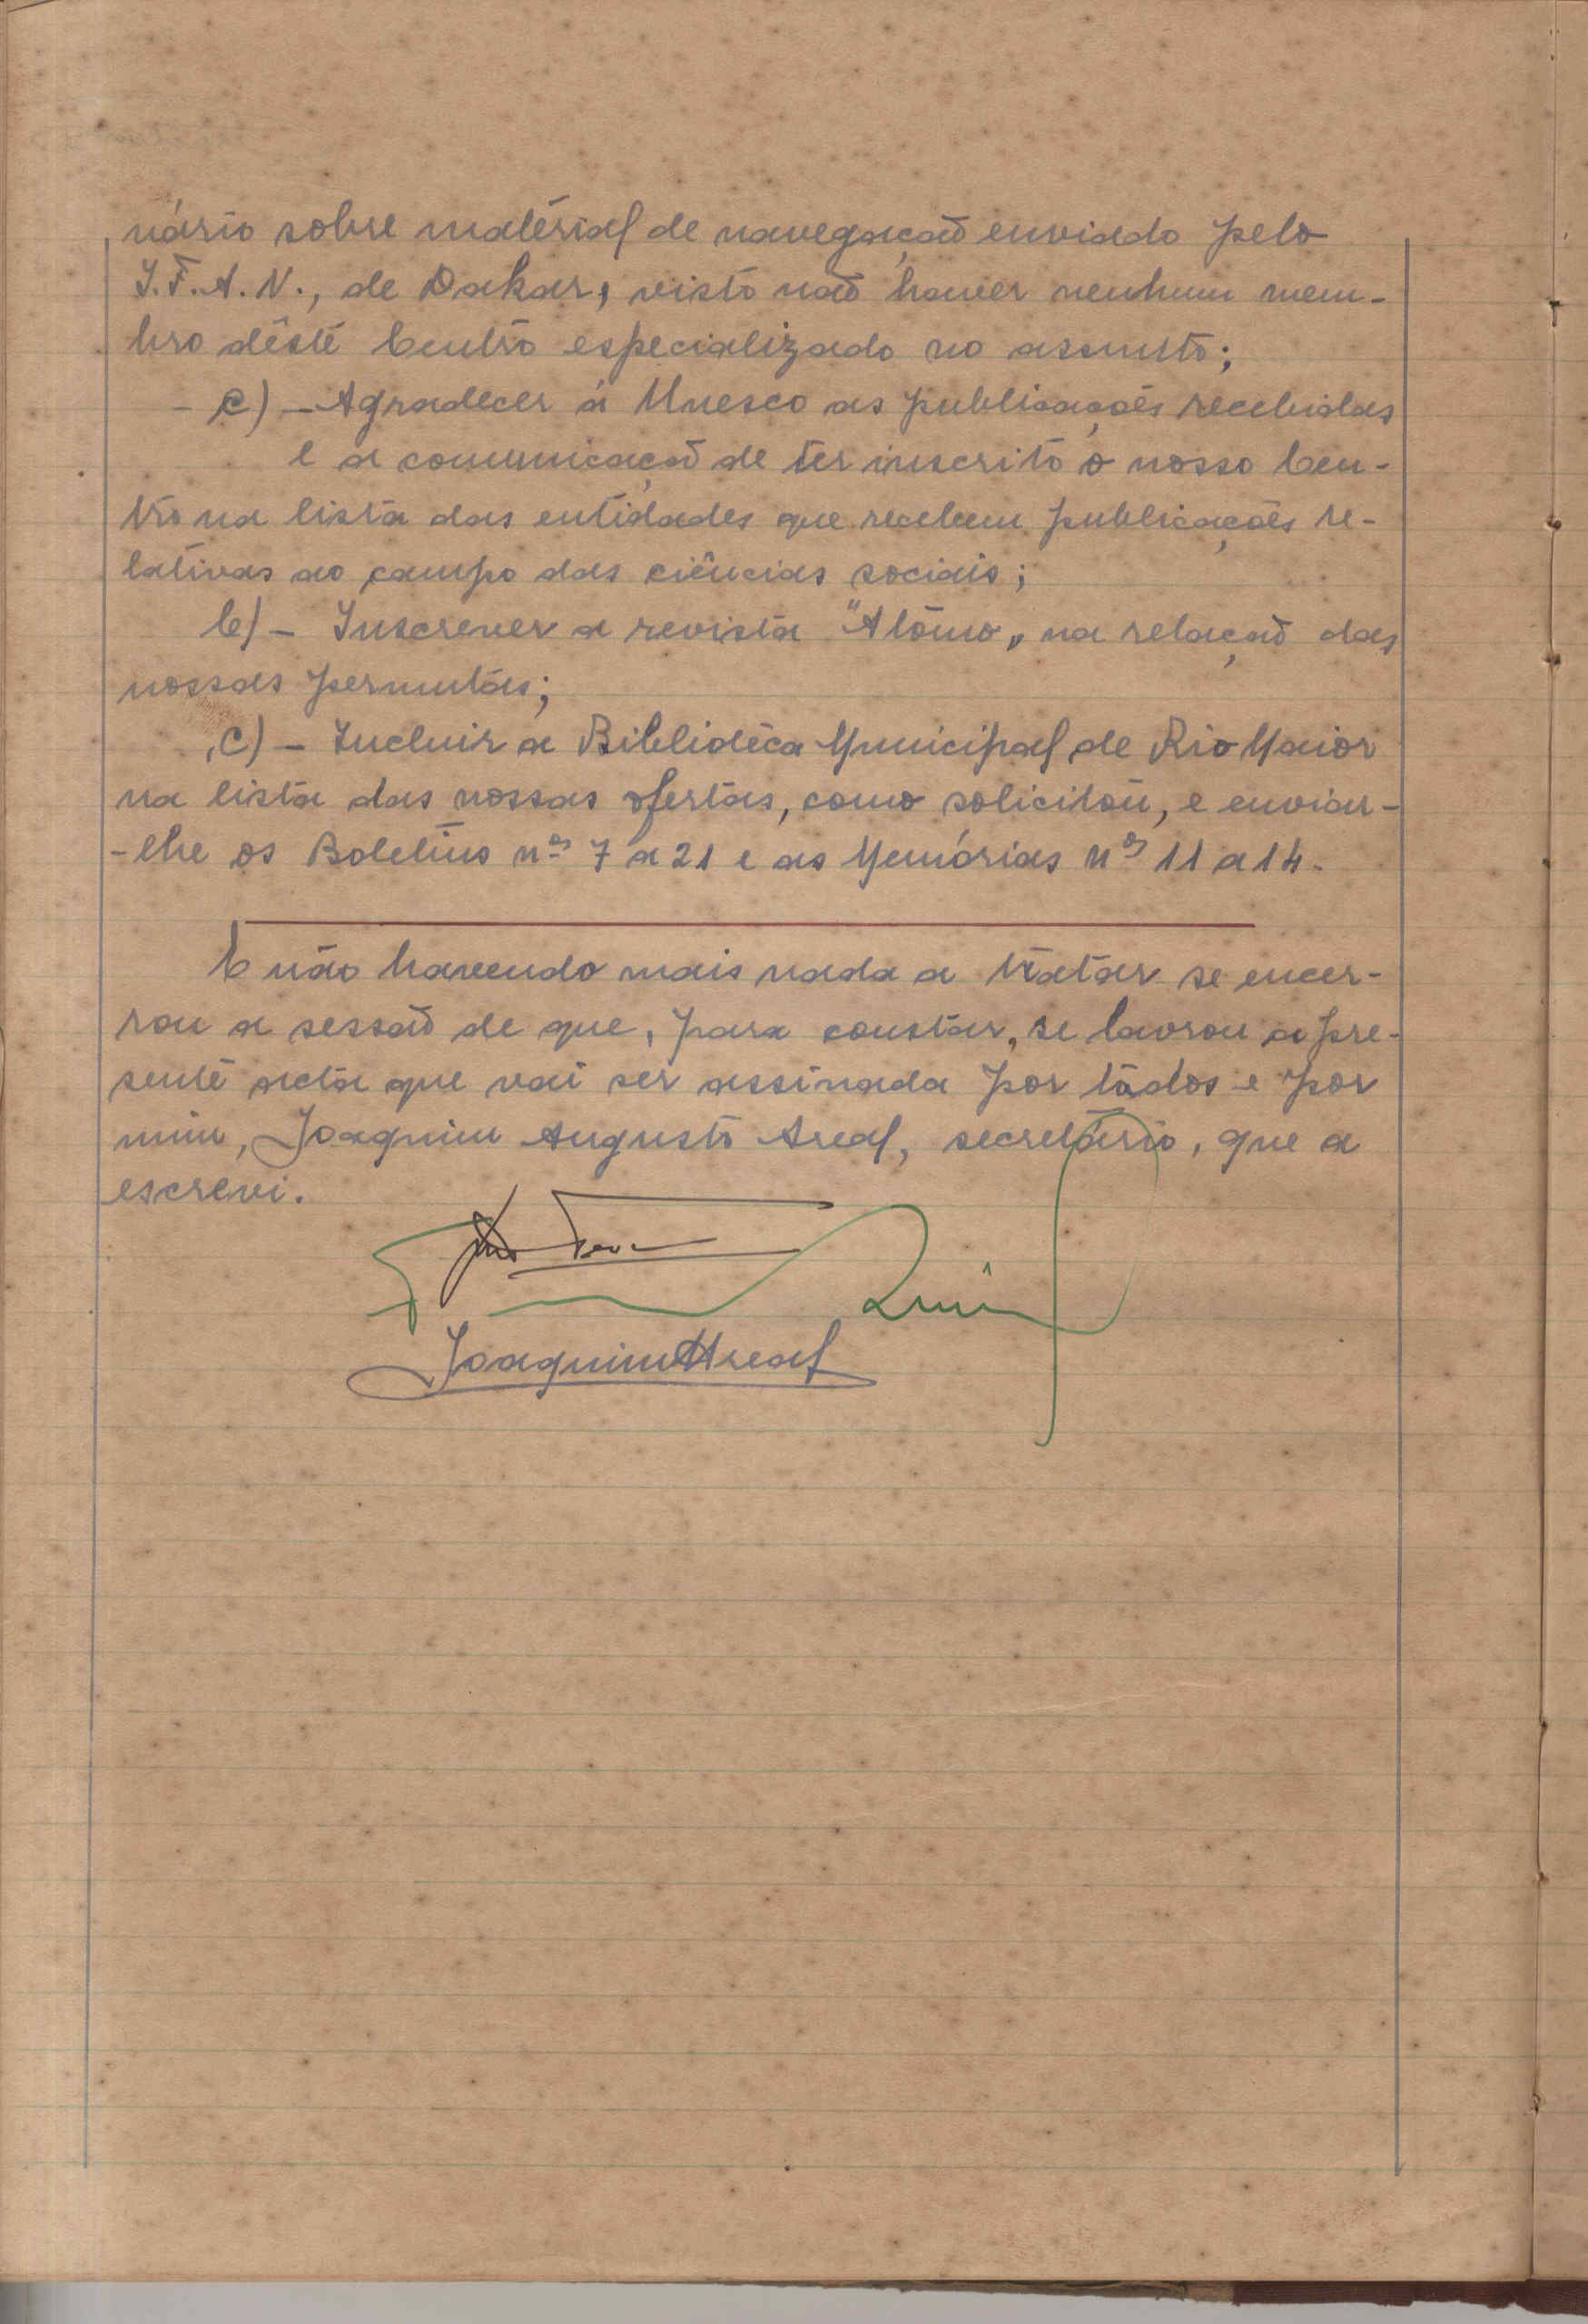 nário sobre material de navegação enviado pelo
I.F.A.N., de Dakar, visto não haver nenhum mem-
bro dêste Centro especializado no assunto;
- c) - Agradecer à Unesco as publicações recebidas
e a comunicação de ter inscrito o nosso Cen-
tro na lista das entidades que recebem publicações re-
lativas ao campo das ciências sociais;
b) - Inscrever a revista "Átomo" na relação das
nossas permutas;
c) - Incluir a Biblioteca Municipal de Rio Maior
na lista das nossas ofertas, como solicitou, e enviar-
-lhe os Boletins nos 7 a 21 e as Memórias nos 11 a 14.
E não havendo mais nada a tratar se encer-
rou a sessão de que, para constar, se lavrou a pre-
sente acta que vai ser assinada por todos e por
mim, Joaquim Augusto Areal, secretário, que a
escrevi.
Joaquim A Areal